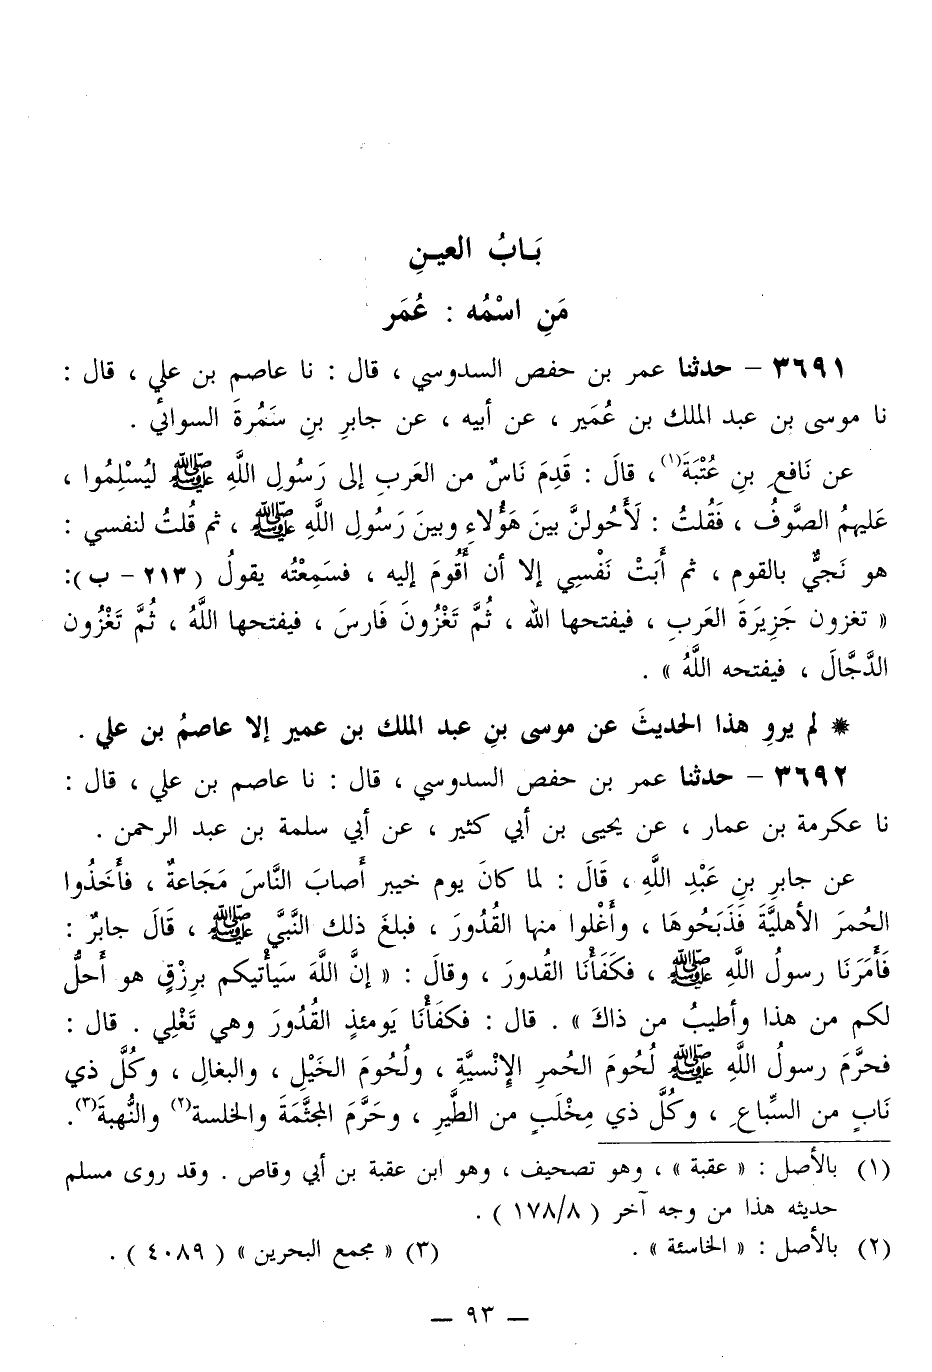 بَـابُ العيـنِ
مَنِ اسْمُه : عُمَر
٣٦٩١ – حدثنا عمر بن حفص السدوسي ، قال : نا عاصم بن علي ، قال :
نا موسى بن عبد الملك بن عُمَير ، عن أبيه ، عن جابرِ بنِ سَمُرةَ السوائي .
عن نَافعِ بنِ عُتْبَةَ(١)، قالَ : قَدِمَ نَاسٌ من العَربِ إلى رَسُولِ اللَّهِ ﷺ ليُسْلِمُوا ،
عَليهمُ الصَّوفُ ، فَقُلتُ : لَأَحُولنَّ بينَ هَؤُلاءِ وبينَ رَسُولِ اللَّهِ ﷺ ، ثم قُلتُ لنفسي :
هو نَجيٌّ بالقوم ، ثم أَبَتْ نَفْسِي إلا أن أَقُومَ إليه ، فسَمِعْتُه يقولُ ( ٢١٣ – ب ):
« تغزون جَزِيرَةَ العَربِ ، فيفتحها الله ، ثُمَّ تَغْزُونَ فَارسَ ، فيفتحها اللَّهُ ، ثُمَّ تَغْزُون
الدَّجَّالَ ، فيفتحه اللَّهُ » .
* لم يروِ هذا الحديثَ عن موسى بنِ عبد الملك بن عمير إلا عاصمُ بن علي .
٣٦٩٢ – حدثنا عمر بن حفص السدوسي ، قال : نا عاصم بن علي ، قال :
نا عكرمة بن عمار ، عن يحيى بن أبي كثير ، عن أبي سلمة بن عبد الرحمن .
عن جابرِ بنِ عَبْدِ اللَّهِ ، قَالَ : لما كانَ يوم خيبر أَصابَ النَّاسَ مَجَاعةٌ ، فأَخَذُوا
الحُمرَ الأهليَّةَ فَذَبَحُوهَا ، وأَغْلوا منها القُدُورَ ، فبلغَ ذلك النَّبيَّ ﷺ ، قَالَ جابرٌ :
فَأَمَرَنَا رسولُ اللَّهِ ﷺ ، فكَفَأْنَا القُدورَ ، وقالَ : « إنَّ اللَّهَ سَيَأْتيكم برِزْقٍ هو أَحلُّ
لكم من هذا وأطيبُ من ذاكَ » . قال : فكفَأْنَا يَومئذٍ القُدُورَ وهي تَغْلِي . قال :
فحرَّمَ رسولُ اللَّهِ ﷺ لُحُومَ الحُمرِ الإِنْسيَّةِ ، ولُحُومَ الخَيْلِ ، والبغالِ ، وكُلَّ ذي
نَابٍ من السِّباعِ ، وكُلَّ ذي مِخْلَبٍ من الطَّيرِ ، وحَرَّمَ المجثَّمَةَ والخلسة(٢) والنُّهبةَ(٣).
(١) بالأصل : « عقبة » ، وهو تصحيف ، وهو ابن عقبة بن أبي وقاص . وقد روى مسلم
حديثه هذا من وجه آخر ( ١٧٨/٨ ) .
(٢) بالأصل : « الخاسئة » . (٣) « مجمع البحرين » ( ٤٠٨٩ ) .
— ٩٣ —